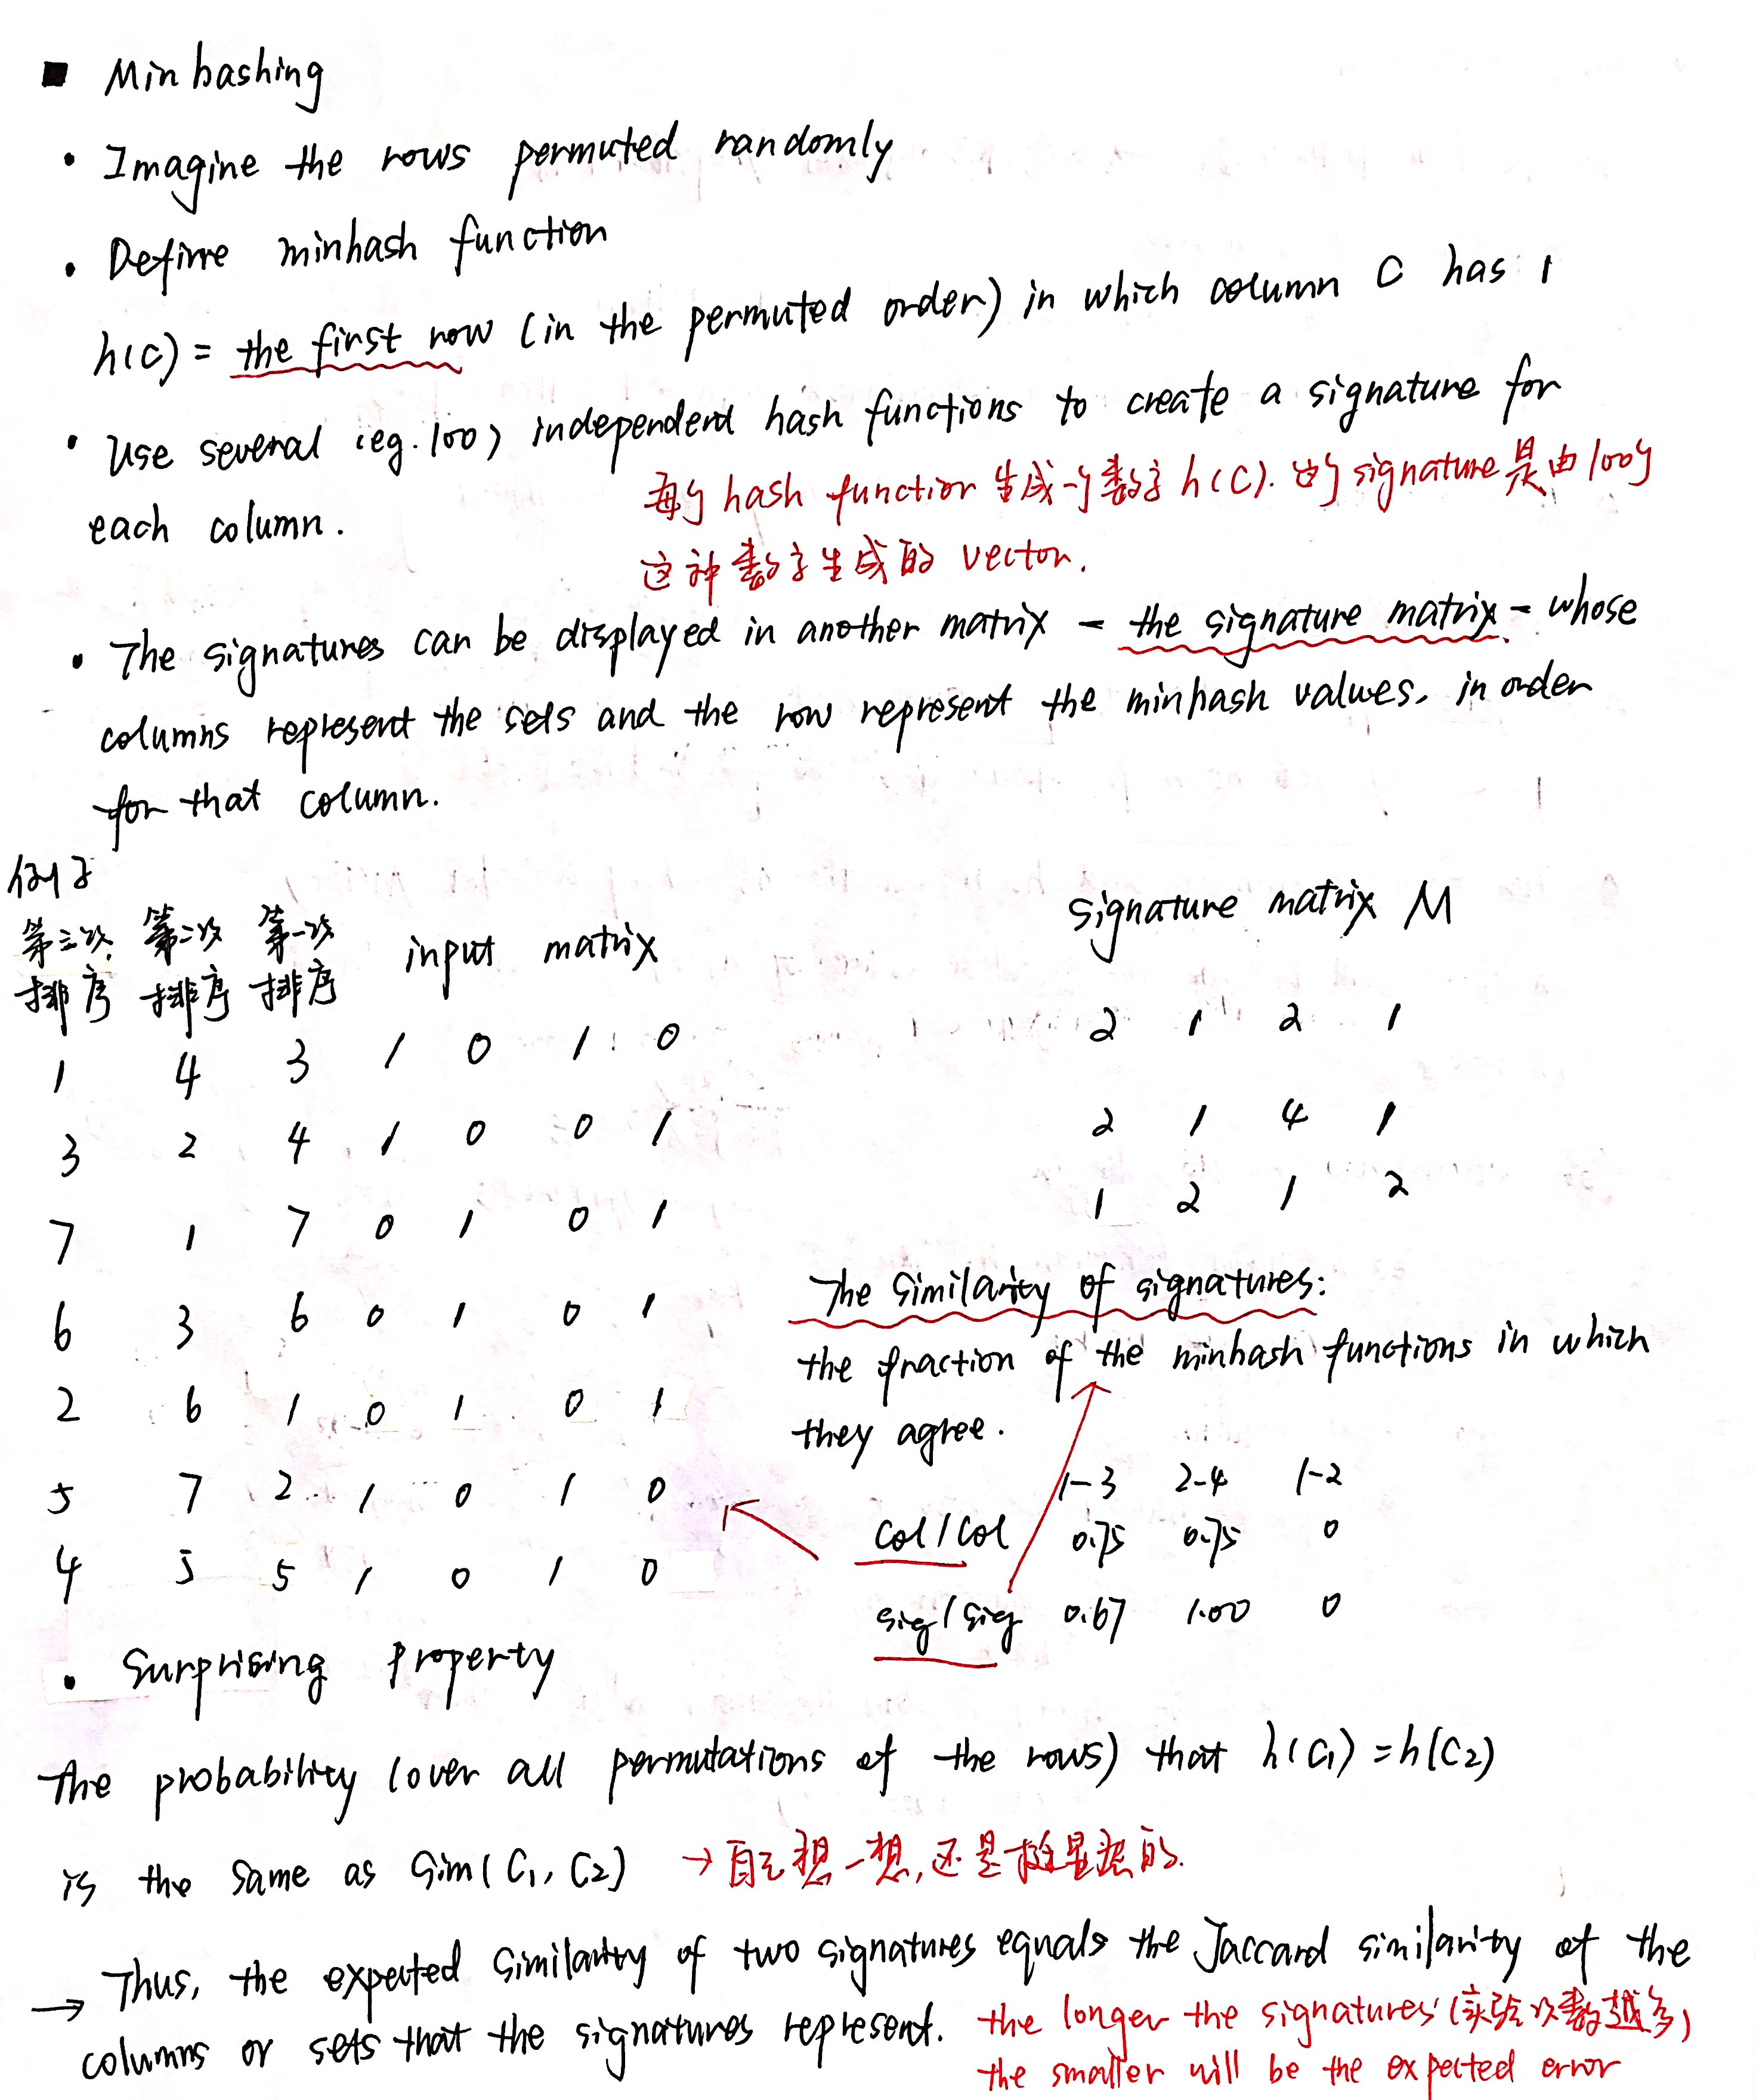 ■ Minhashing
• Imagine the rows permuted randomly
• Define minhash function
h(C) = the first row (in the permuted order) in which column C has 1
• Use several (eg. 100) independent hash functions to create a signature for
each column.
每个 hash function 生成一个数字 h(C). 的 signature 是由100个
这种数字生成的 vector.
• The signatures can be displayed in another matrix - the signature matrix - whose
columns represent the sets and the row represent the minhash values, in order
for that column.
例子
第三次 第二次 第一次
排序 排序 排序 input matrix
1 4 3 1 0 1 0
3 2 4 1 0 0 1
7 1 7 0 1 0 1
6 3 6 0 1 0 1
2 6 1 0 1 0 1
5 7 2 1 0 1 0
4 5 5 1 0 1 0
signature matrix M
2 1 2 1
2 1 4 1
1 2 1 2
The similarity of signatures:
the fraction of the minhash functions in which
they agree.
1-3 2-4 1-2
Col/Col 0.75 0.75 0
Sig/Sig 0.67 1.00 0
• Surprising Property
The probability (over all permutations of the rows) that h(C₁) = h(C₂)
is the same as Sim(C₁, C₂) → 自己想一想,还是挺显然的.
→ Thus, the expected similarity of two signatures equals the Jaccard similarity of the
columns or sets that the signatures represent. the longer the signatures (实验次数越多)
the smaller will be the expected error